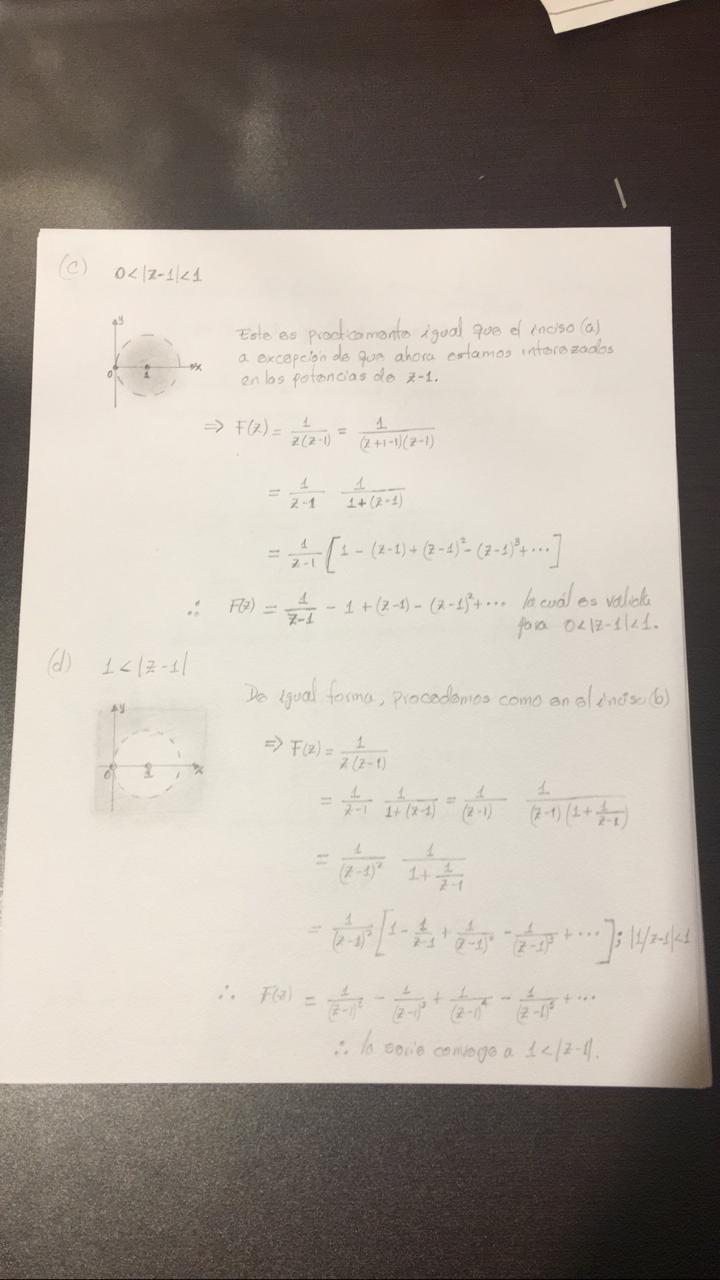 (c) 0<|z-1|<1
y
0 1 x
Este es practicamente igual que el inciso (a)
a excepción de que ahora estamos interezados
en las potencias de z-1.
⇒ F(z) = 1/(z(z-1)) = 1/((z+1-1)(z-1))
= 1/(z-1) 1/(1+(z-1))
= 1/(z-1) [1 - (z-1) + (z-1)² - (z-1)³ + ⋯]
∴ F(z) = 1/(z-1) - 1 + (z-1) - (z-1)² + ⋯ la cuál es valida
para 0<|z-1|<1.
(d) 1<|z-1|
De igual forma, procedemos como en el inciso (b)
y
0 1 x
⇒ F(z) = 1/(z(z-1))
= 1/(z-1) 1/(1+(z-1)) = 1/(z-1) 1/((z-1)(1+1/(z-1)))
= 1/(z-1)² 1/(1+1/(z-1))
= 1/(z-1)² [1 - 1/(z-1) + 1/(z-1)² - 1/(z-1)³ + ⋯]; |1/z-1|<1
∴ F(z) = 1/(z-1)² - 1/(z-1)³ + 1/(z-1)⁴ - 1/(z-1)⁵ + ⋯
∴ la serie converge a 1<|z-1|.